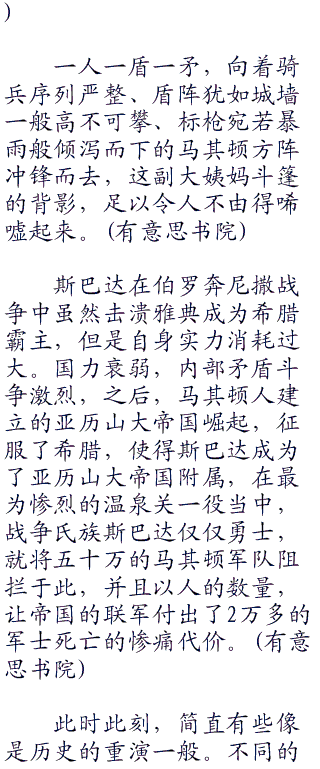 )
一人一盾一矛，向着骑
兵序列严整、盾阵犹如城墙
一般高不可攀、标枪宛若暴
雨般倾泻而下的马其顿方阵
冲锋而去，这副大姨妈斗篷
的背影，足以令人不由得唏
嘘起来。(有意思书院)
斯巴达在伯罗奔尼撒战
争中虽然击溃雅典成为希腊
霸主，但是自身实力消耗过
大。国力衰弱，内部矛盾斗
争激烈，之后，马其顿人建
立的亚历山大帝国崛起，征
服了希腊，使得斯巴达成为
了亚历山大帝国附属，在最
为惨烈的温泉关一役当中，
战争氏族斯巴达仅仅勇士，
就将五十万的马其顿军队阻
拦于此，并且以人的数量，
让帝国的联军付出了2万多的
军士死亡的惨痛代价。(有意
思书院)
此时此刻，简直有些像
是历史的重演一般。不同的